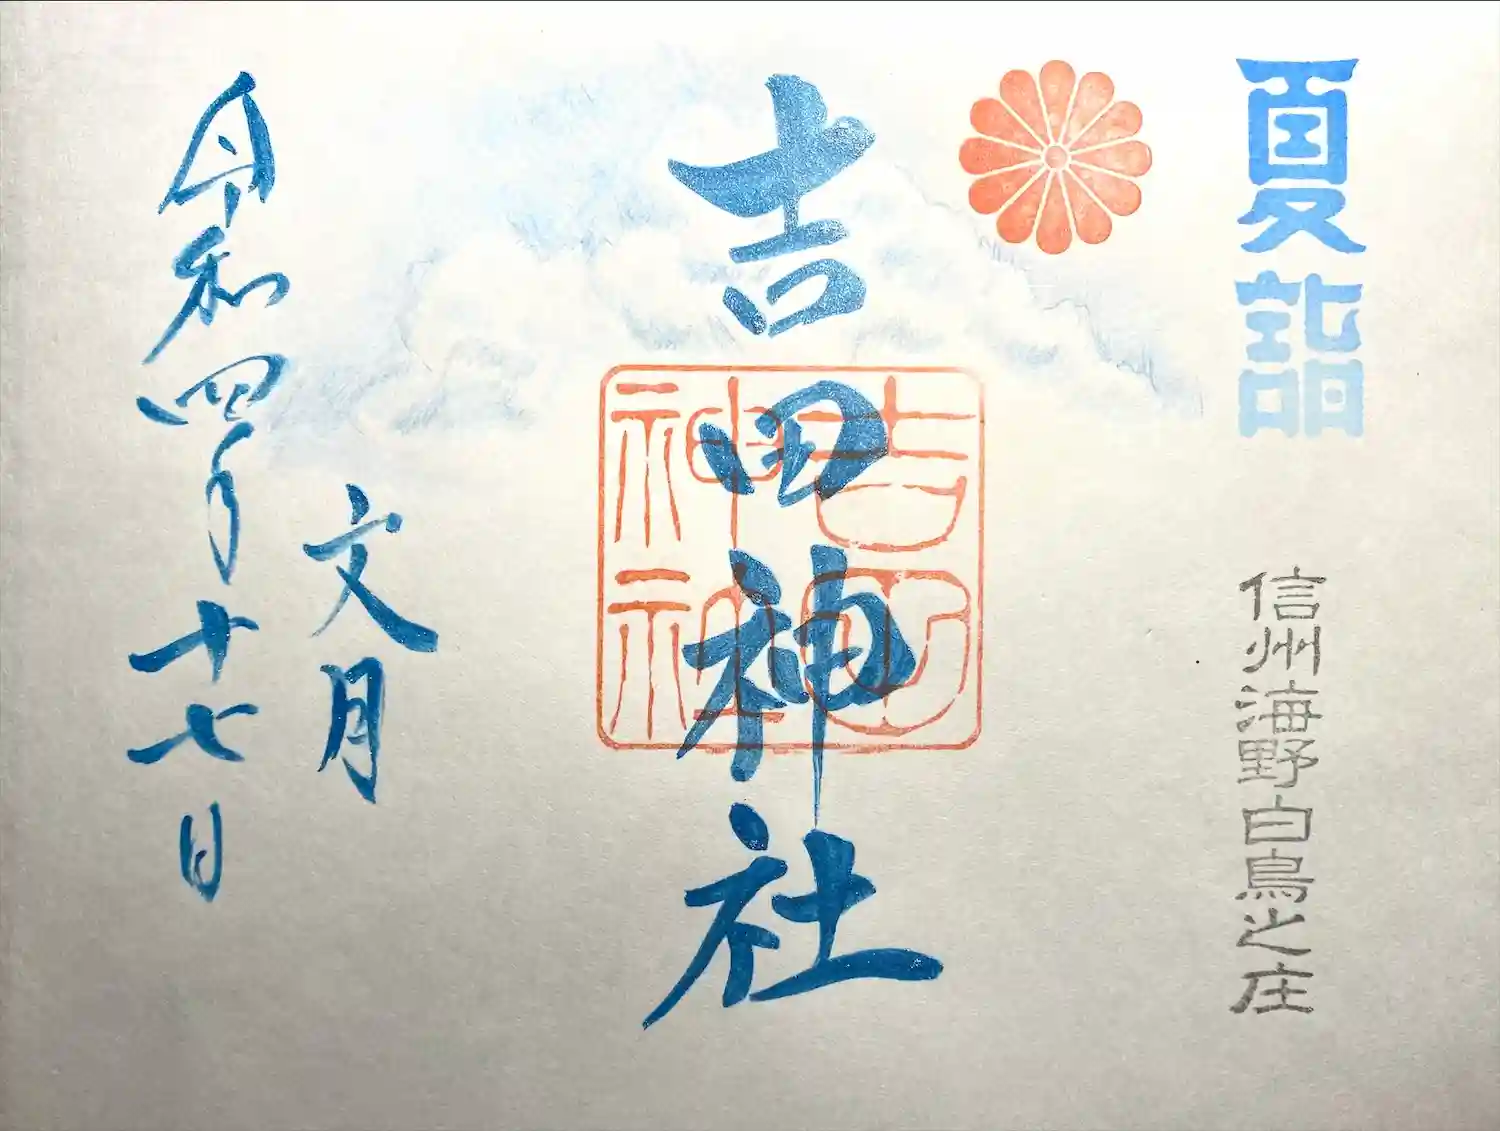 夏詣
信州海野白鳥之庄
吉田神社
吉田
神社
文月
令和四年十七日